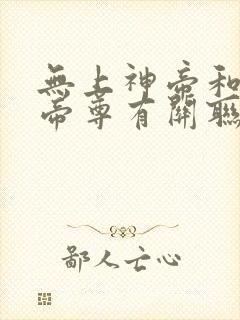 無上神帝和
帝尊有關聯
鄙人亡心